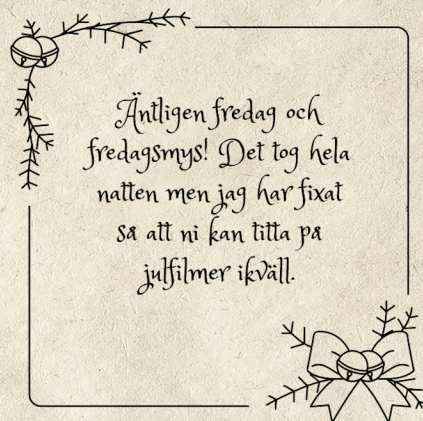 Äntligen fredag och
fredagsmys! Det tog hela
natten men jag har fixat
så att ni kan titta på
julfilmer ikväll.